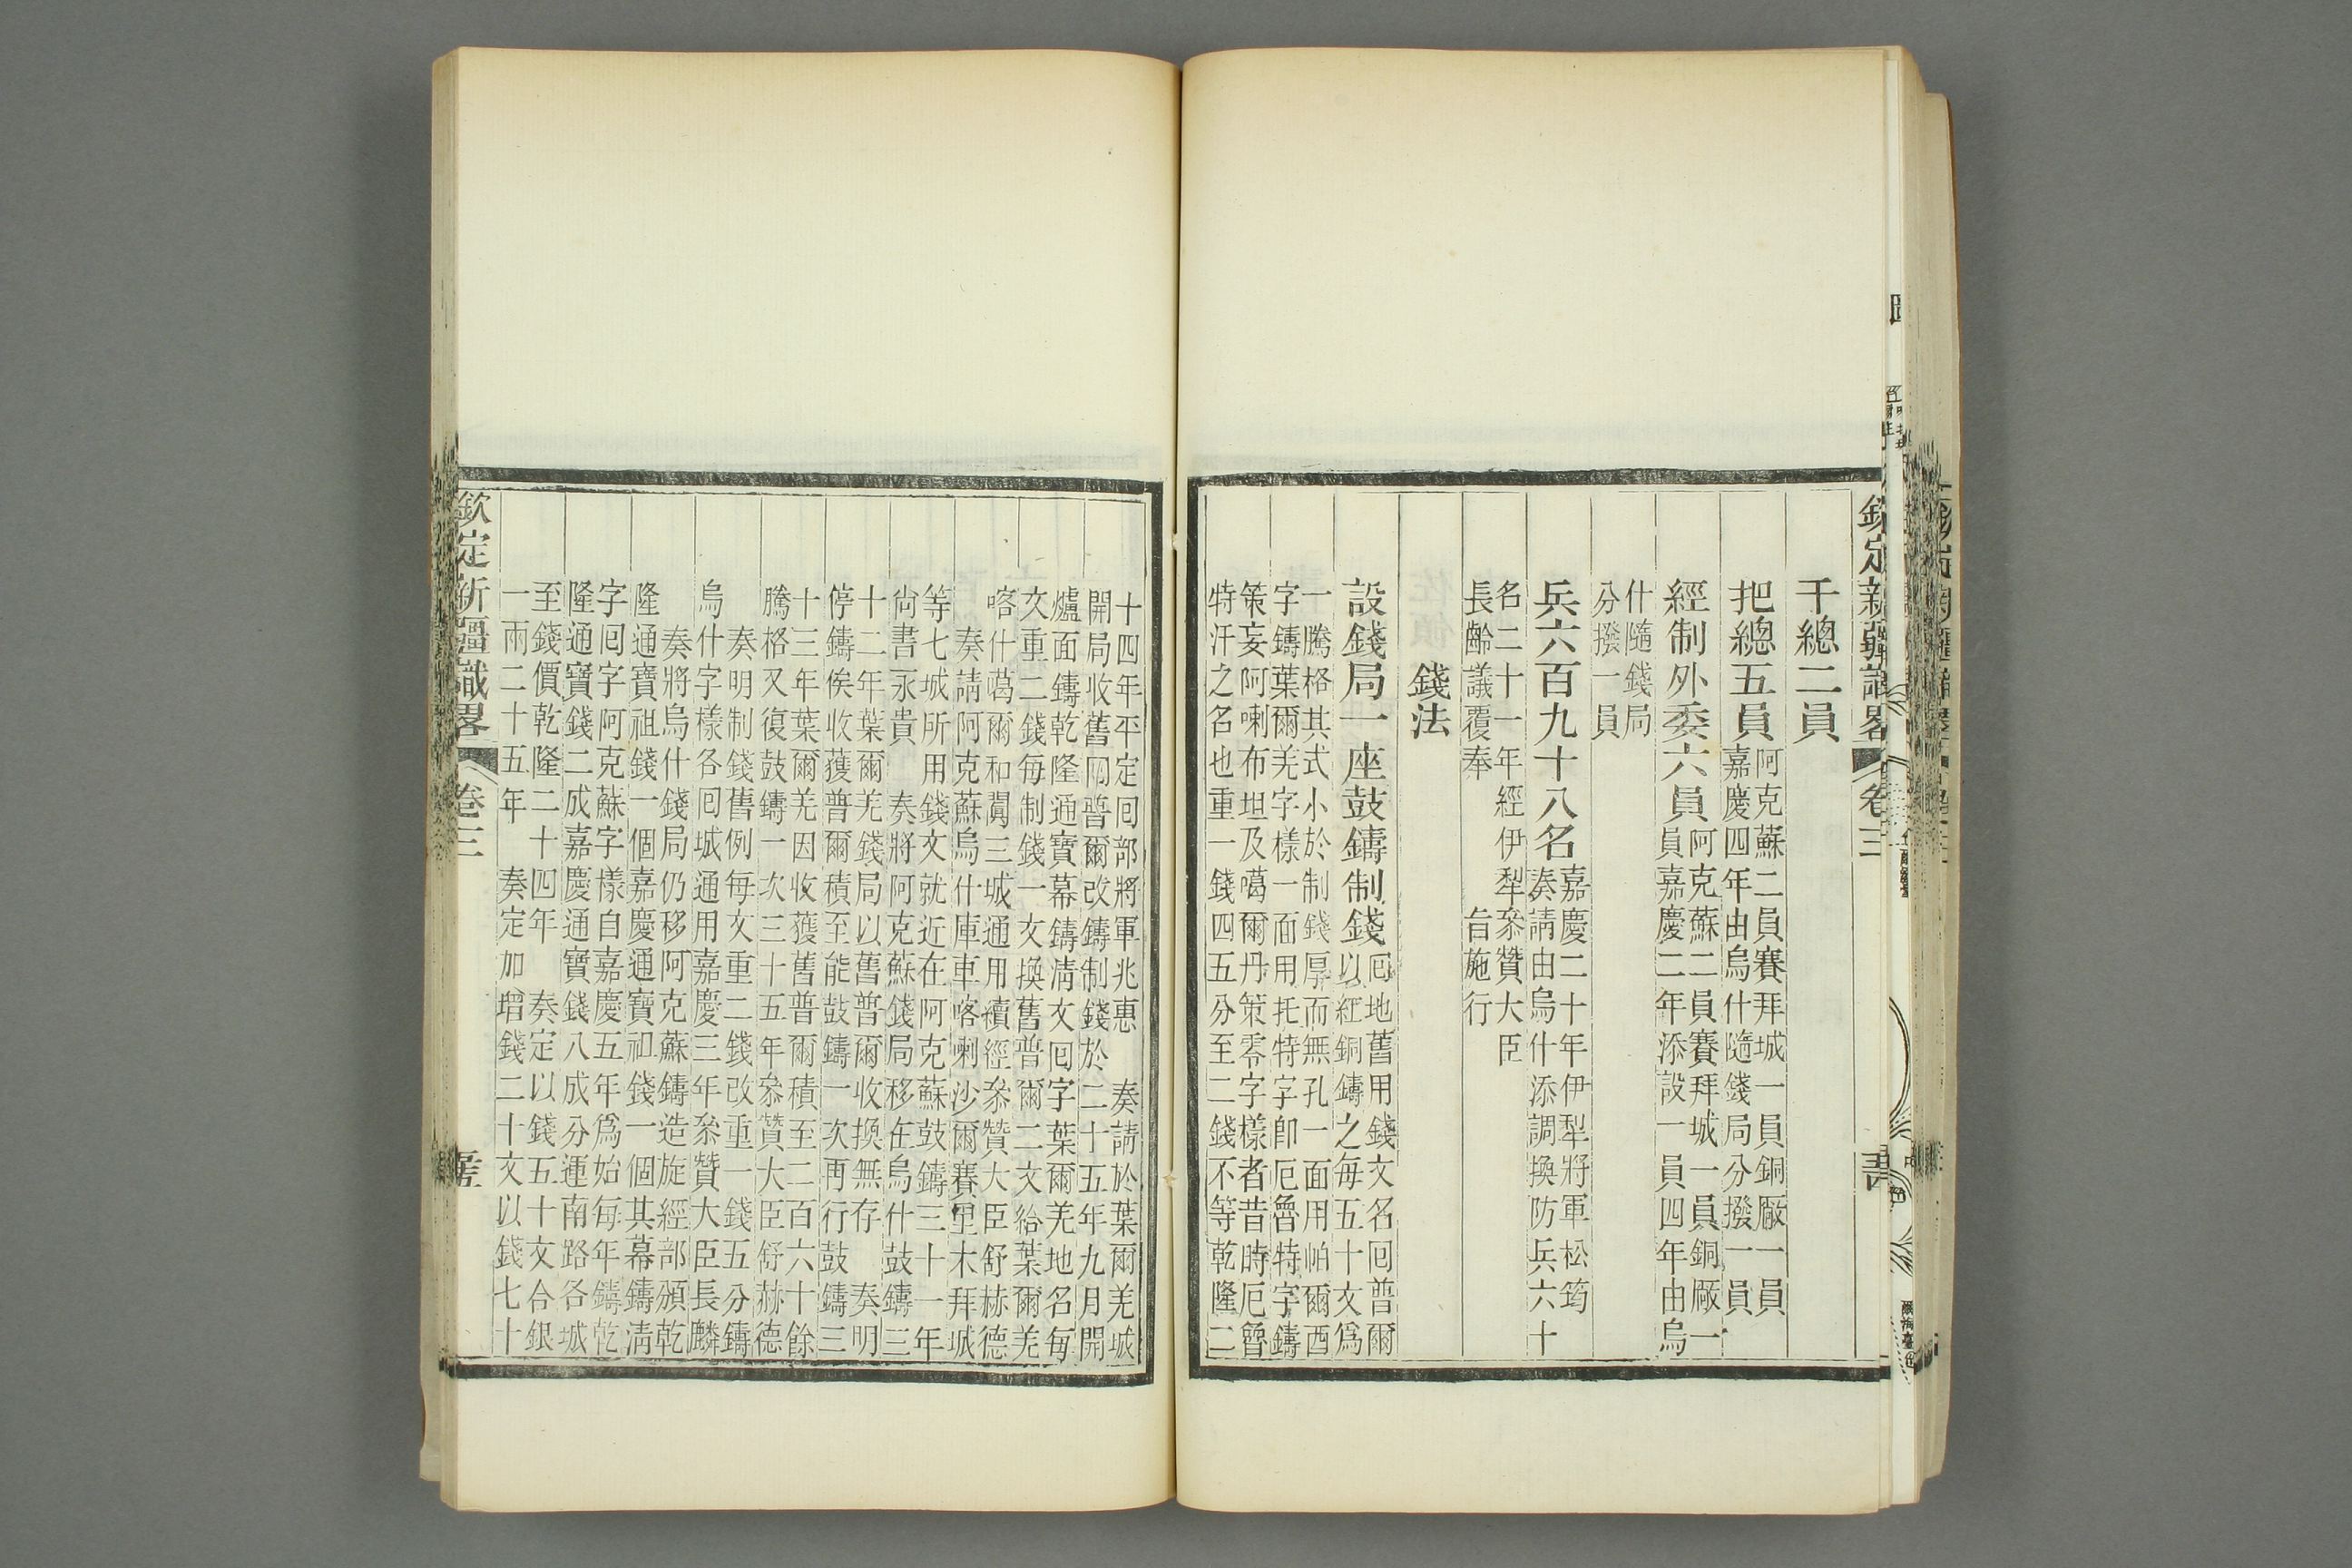 欽定新疆識畧 卷三
千總二員
把總五員
阿克蘇二員賽拜城一員銅厰一員
嘉慶四年由烏什隨錢局分撥一員
經制外委六員
阿克蘇二員賽拜城一員銅厰一
員嘉慶二年添設一員四年由烏
什隨錢局
分撥一員
兵六百九十八名
嘉慶二十年伊犁將軍松筠
奏請由烏什添調換防兵六十
名二十一年經伊犁叅贊大臣
長齡議覆奉 旨施行
錢法
設錢局一座鼓鑄制錢
囘地舊用錢文名囘普爾
以紅銅鑄之每五十文爲
一騰格其式小於制錢厚而無孔一面用帕爾西
字鑄葉爾羌字樣一面用托特字卽厄魯特字鑄
策妄阿喇布坦及噶爾丹策零字樣者昔時厄魯
特汗之名也重一錢四五分至二錢不等乾隆二
十四年平定囘部將軍兆惠 奏請於葉爾羌城
開局收舊囘普爾改鑄制錢於二十五年九月開
爐面鑄乾隆通寶幕鑄淸文囘字葉爾羌地名每
文重二錢每制錢一文換舊普爾二文給葉爾羌
喀什噶爾和闐三城通用續經叅贊大臣舒赫德
奏請阿克蘇烏什庫車喀喇沙爾賽里木拜城
等七城所用錢文就近在阿克蘇鼓鑄三十一年
尙書永貴 奏將阿克蘇錢局移在烏什鼓鑄三
十二年葉爾羌錢局以舊普爾收換無存 奏明
停鑄俟收獲普爾積至能鼓鑄一次再行鼓鑄三
十三年葉爾羌因收獲舊普爾積至二百六十餘
騰格又復鼓鑄一次三十五年叅贊大臣舒赫德
奏明制錢舊例每文重二錢改重一錢五分鑄
烏什字樣各囘城通用嘉慶三年叅贊大臣長麟
奏將烏什錢局仍移阿克蘇鑄造旋經部頒乾
隆通寶祖錢一個嘉慶通寶祖錢一個其幕鑄淸
字囘字阿克蘇字樣自嘉慶五年爲始每年鑄乾
隆通寶錢二成嘉慶通寶錢八成分運南路各城
至錢價乾隆二十四年 奏定以錢五十文合銀
一兩二十五年 奏定加增錢二十文以錢七十
欽定新疆識畧 卷三